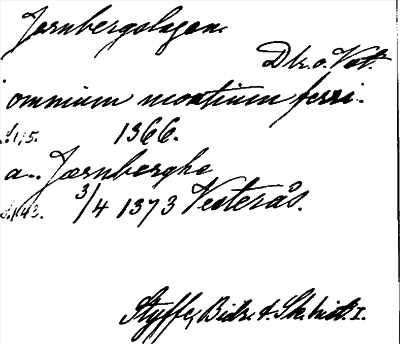 Jernbergslagen.
Dlr. o. Vat.
omnium montium ferri.
S. 115. 1366.
a.. Jærnberghe
S. 143. 3/4 1373 Vesterås.
Styffe, Bidr. t. Sk. hist. I.